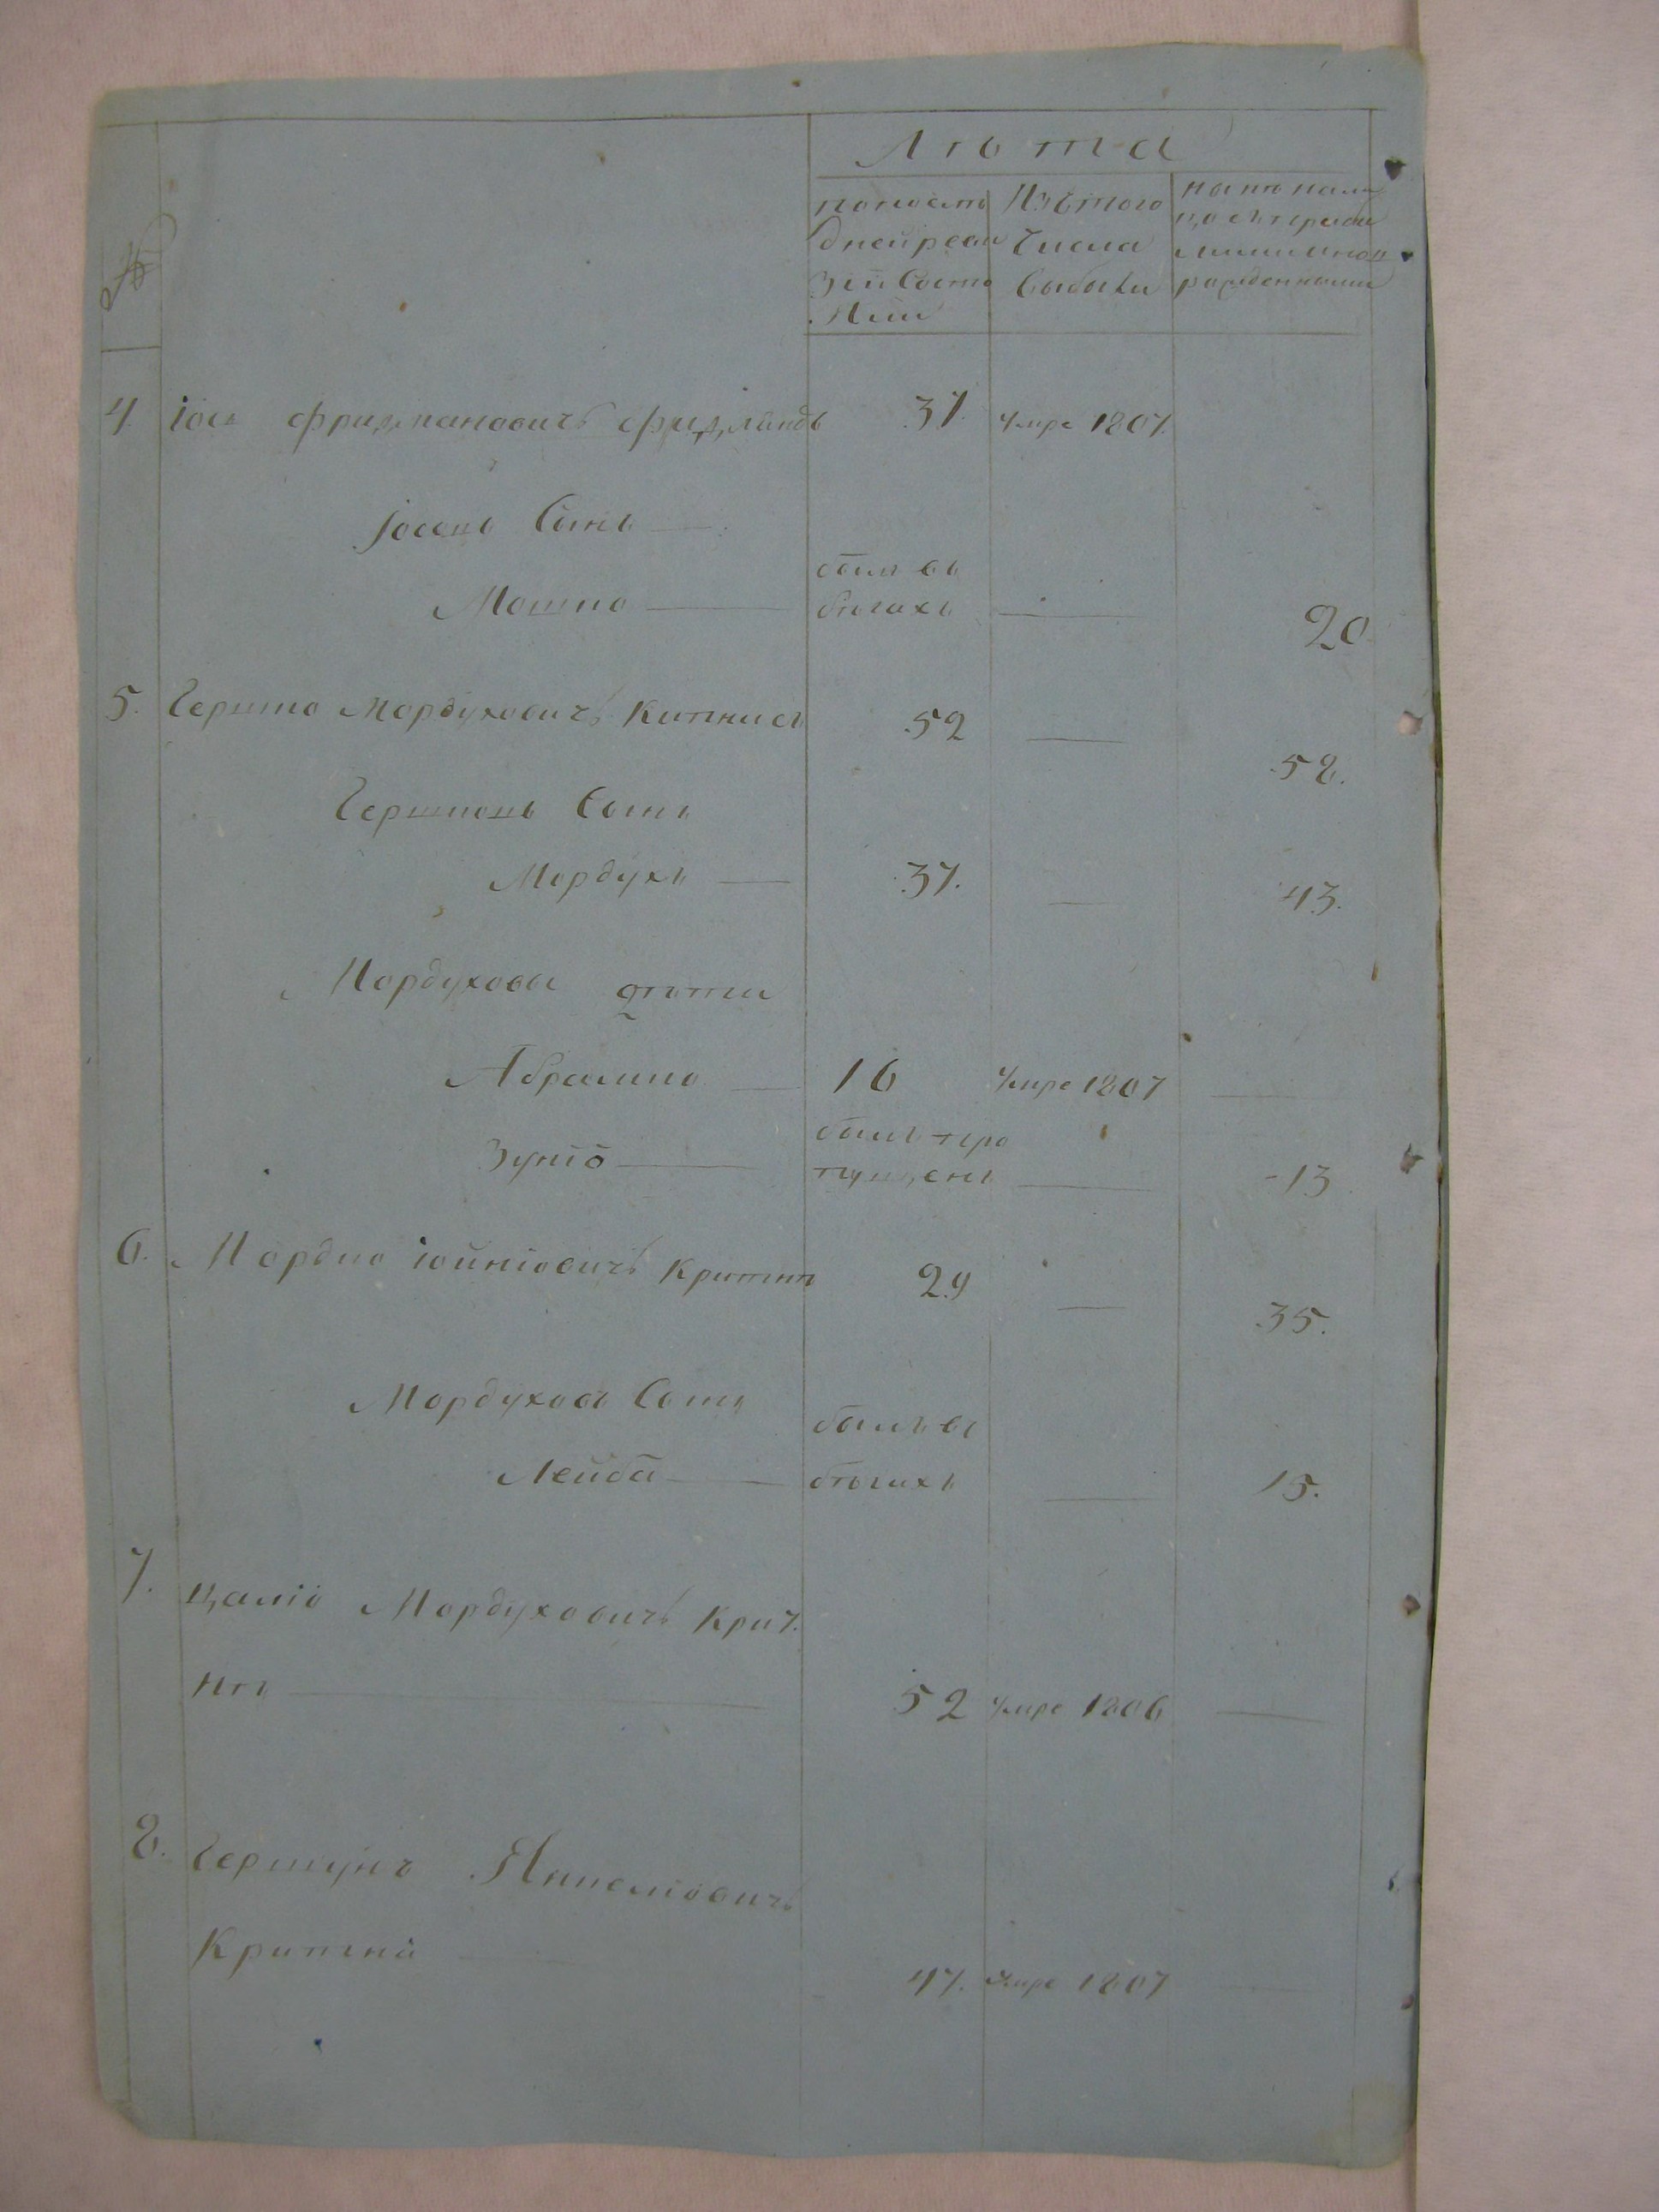 №
Лѣта
по послѣ
дней реви
зіи Состо
Яли
Изъ того
Числа
Выбыли
нынѣ нали
цо съ прибы
лыми и нов
рожденными
4. Іось Фридмановичъ Фридландъ 37. Умре 1807.
Іосевъ Сынъ
Мошко былъ въ бѣгахъ 20
5. Гершко Мордуховичъ Кипнисъ 52 58.
Гершковъ Сынъ
Мордухъ 37. 43.
Мордуховы дѣти
Абрамко 16 Умре 1807
Зунiо былъ про
пущенъ 13
6. Мордко Іойніовичъ 29 35.
Мордуховъ Сынъ
Лейба былъ въ бѣгахъ 15.
7. Цаліо Мордуховичъ
52 Умре 1806
8. Гершунъ Янкеліовичъ
47. Умре 1807